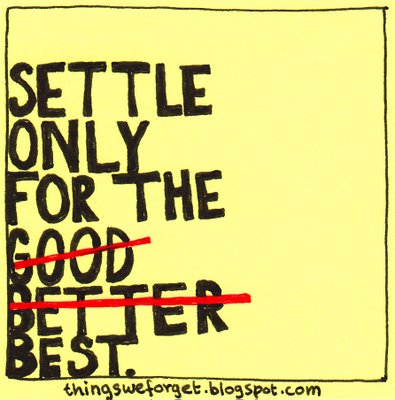 SETTLE
ONLY
FOR THE
GOOD
BETTER
BEST.
thingsweforget.blogspot.com